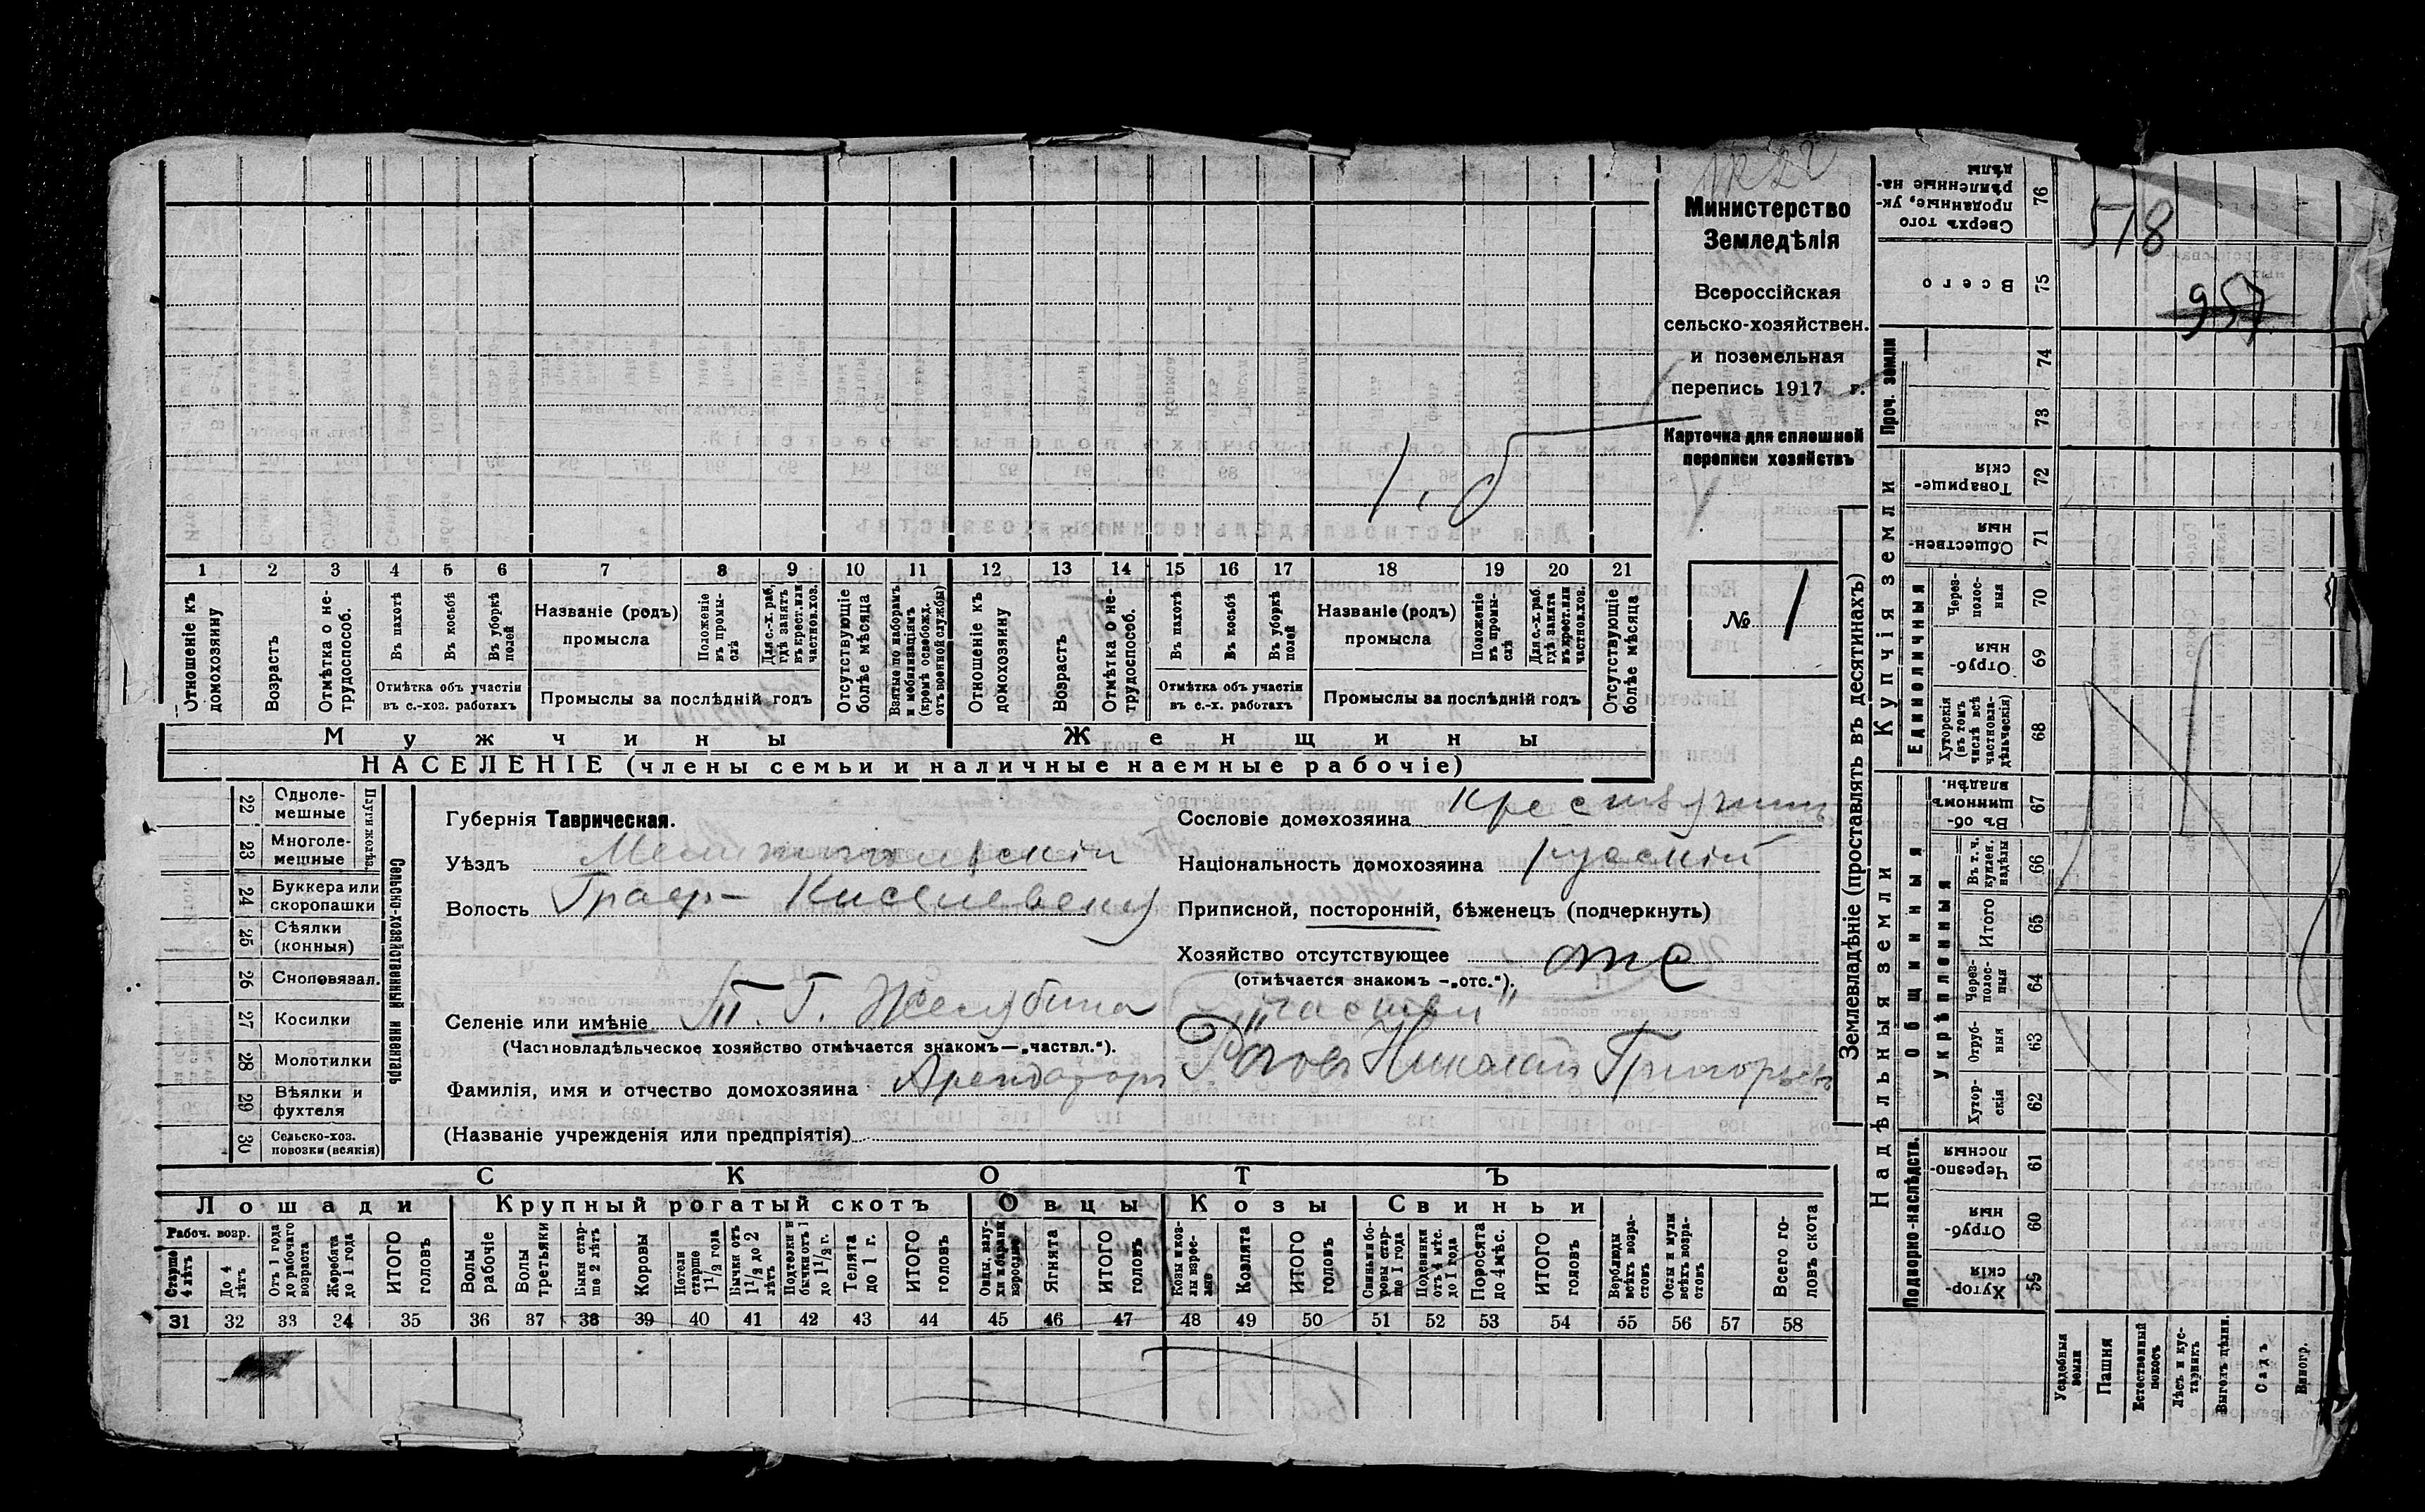 Министерство
Земледѣлія
Всероссійская
сельско-хозяйствен.
и поземельная
перепись 1917 г.
Карточка для сплошной
переписи хозяйствъ
№ 1
1 2 3 4 5 6 7 8 9 10 11 12 13 14 15 16 17 18 19 20 21
Отношеніе къ домохозяину
Возрастъ
Отмѣтка о не-трудоспособ.
Въ пахотѣ
Въ косьбѣ
Въ уборкѣ полей
Отмѣтка объ участіи въ с.-хоз. работахъ
Названіе (родъ) промысла
Положеніе въ промы-слѣ
Для с.-х. раб. гдѣ занятъ въ крест. или частнов. хоз.
Промыслы за послѣдній годъ
Отсутствующіе болѣе мѣсяца
Взятые по наборамъ и мобилизаціямъ (кромѣ освобожд. отъ военной службы)
Отношеніе къ домохозяину
Возрастъ
Отмѣтка о не-трудоспособ.
Въ пахотѣ
Въ косьбѣ
Въ уборкѣ полей
Отмѣтка объ участіи въ с.-х. работахъ
Названіе (родъ) промысла
Положеніе въ промы-слѣ
Для с.-х. раб. гдѣ занята въ крест. или частнов. хоз.
Промыслы за послѣдній годъ
Отсутствующіе болѣе мѣсяца
Мужчины Женщины
НАСЕЛЕНІЕ (члены семьи и наличные наемные рабочіе)
Сельско-хозяйственный инвентарь
22 Одноле-мешные
23 Многоле-мешные
24 Буккера или скоропашки
25 Сѣялки (конныя)
26 Сноповязал.
27 Косилки
28 Молотилки
29 Вѣялки и фухтеля
30 Сельско-хоз. повозки (всякія)
Губернія Таврическая.
Уѣздъ Мелитопольскій
Волость Граф-
Селеніе или имѣніе
(Частновладѣльческое хозяйство отмѣчается знакомъ—„частвл.“).
Фамилія, имя и отчество домохозяина Арендаторъ Николай Григорьевъ
(Названіе учрежденія или предпріятія)
Сословіе домохозяина Крестьянинъ
Національность домохозяина русскій
Приписной, посторонній, бѣженецъ (подчеркнуть)
Хозяйство отсутствующее отс
(отмѣчается знакомъ —„отс.“).
СКОТЪ
Лошади Крупный рогатый скотъ Овцы Козы Свиньи
Рабоч. возр.
Старше 4 лѣтъ
До 4 лѣтъ
Отъ 1 года до рабочаго возраста
Жеребята до 1 года
ИТОГО головъ
Волы рабочіе
Волы третьяки
Быки стар-ше 2 лѣтъ
Коровы
Нетели старше 1 1/2 года
Бычки отъ 1 1/2 до 2 лѣтъ
Подтелки и бычки отъ 1 до 1 1/2 г.
Телята до 1 г.
ИТОГО головъ
Овцы, валу-хи и бараны взрослые
Ягнята
ИТОГО головъ
Козы и коз-лы взрос-лые
Козлята
ИТОГО головъ
Свиньи и бо-ровы стар-ше 1 года
Подсвинки отъ 4 мѣс. до 1 года
Поросята до 4 мѣс.
ИТОГО головъ
Верблюды всѣхъ возра-стовъ
Ослы и мулы всѣхъ возра-стовъ
Всего го-ловъ скота
31 32 33 34 35 36 37 38 39 40 41 42 43 44 45 46 47 48 49 50 51 52 53 54 55 56 57 58
Землевладѣніе (проставлять въ десятинахъ)
Надѣльныя земли
Купчія земли
Проч. земли
Подворно-наслѣдств.
Общинныя
Укрѣпленныя
Единоличныя
59 Хутор-скія
60 Отруб-ныя
61 Черезпо-лосныя
62 Хутор-скія
63 Отруб-ныя
64 Через-полос-ныя
65 Итого
66 Въ т. ч. куплен. надѣлы
67 Въ об-щинномъ владѣн.
68 Хуторскія (въ томъ числѣ всѣ частновла-дѣльческія)
69 Отруб-ныя
70 Через-полос-ныя
71 Обществен-ныя
72 Товарище-скія
73
74
75 Всего
76 Сверхъ того проданные, ук-рѣпленные на-дѣлы
518
957
Усадебныя земли
Пашня
Естественный покосъ
Лѣсъ и кус-тарникъ
Выгонъ цѣлин.
Садъ
Виногр.